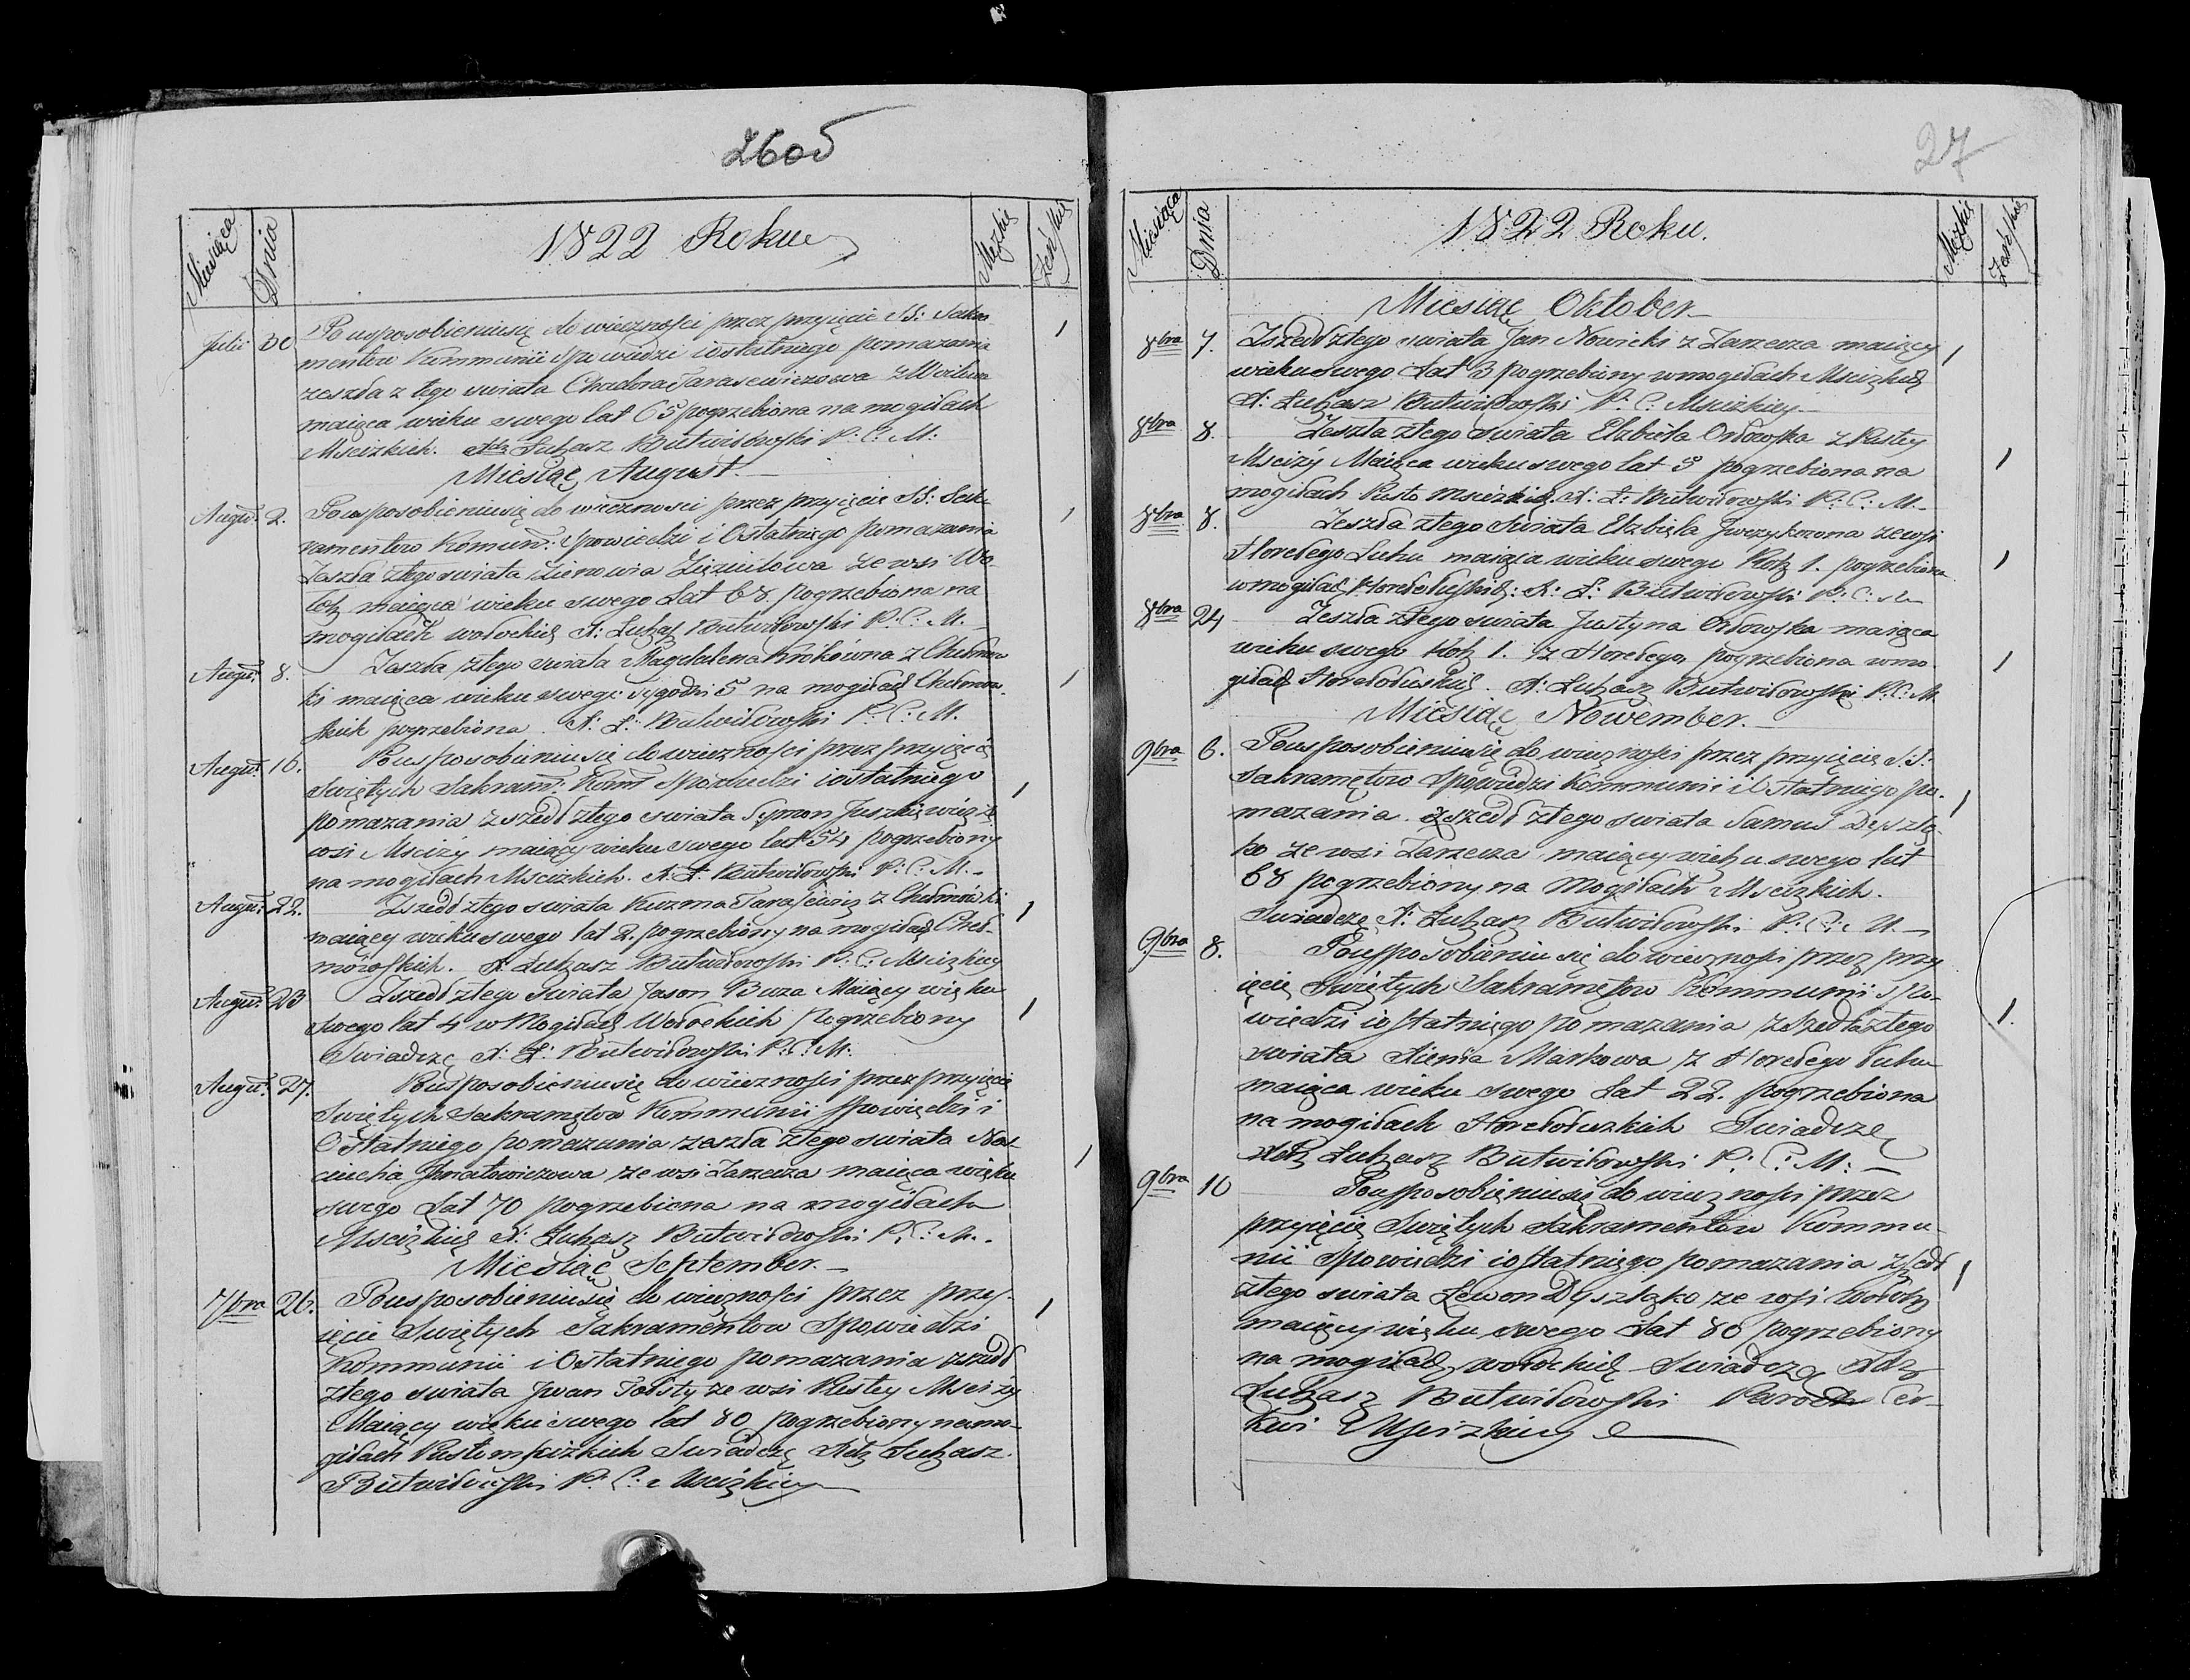 26об
Miesiąca Dnia 1822 Roku Męzkie Zeńskie
Julii 30 Po usposobieniusię do wieczności przez przyięcie SS: Sakra 1
mentów Kommunii Spowiedzi i ostatniego pomazania
zeszła z tego swiata Chwedora Tarasewiczowa z
maiąca wieku swego lat 65 pogrzebiona na mogiłach
Mscizkich. Łukasz Butwiłowski P: C: M:
Miesiąc August.
Augu: 2. Pousposobieniusię do wieczności przez przyięcie SS: Sak- 1
ramentow Komun: Spowiedzi i Ostatniego pomazania
Zeszła ztego swiata Zienowia ze wsi Wo
łok maiąca wieku swego Lat 68 pogrzebiona na
mogiłach wołockich X: Łukasz Butwiłowski P: C: M.
Augu: 8. Zeszła ztego swiata Magdalena Krókówna z Chełmow 1
ki maiąca wieku swego tygodni 5 na mogiłach Chełmow
skich pogrzebiona. X: Ł: Butwiłowski P: C: M.
Augu: 16. Pousposobieniusię do wieczności przez przyięcie
Swiętych Sakram: Kom: Spowiedzi i ostatniego 1
pomazania zszedł ztego swiata Symon Juszkiewicz ze
wsi Mscizy maiący wieku swego lat 54 pogrzebiony
na mogiłach Mscizkich. X. Ł. Butwiłowski P: C: M.
Augu: 22. Zszedł ztego swiata Kuzma z Chełmowki 1
maiący wieku swego lat 2. pogrzebiony na mogiłach Cheł-
mowskich. X Łukasz Butwiłowski P: C: Mscizkiey
Augu: 23 Zszedł ztego swiata Jason Buza Maiący wieku
Swego lat 4 w Mogiłach Wołockich pogrzebiony 1
Swiadczę X: Ł: Butwiłowski P: C: M.
Augu: 27. Pousposobieniusię do wieczności przez przyięcie
Swiętych Sakramętow Kommunii Spowiędzi i
Ostatniego pomazania zeszła ztego swiata Na
Jgnatowiczowa ze wsi Zarzecza maiąca wieku 1
swego Lat 70 pogrzebiona na mogiłach
Mscizkich X: Łukasz Butwiłowski P: C: M.
Miesiąc September.
7bra 26. Pousposobieniusię do wieczności przez przy- 1
ięcie Swiętych Sakramentow Spowiedzi
Kommunii i Ostatniego pomazania zszedł
ztego swiata Jwan Tołsty ze wsi Pustey Mscizy
Maiący wieku swego lat 80 pogrzebiony namo-
giłach Pustomscizkich Swiadczę Xdz Łukasz
Butwiłowski P. C. Mscizkiey
27
Miesiąca Dnia 1822 Roku. Męzkie Zeńskie
Miesiąc Oktober
8bra 7. Zszedł ztego swiata Jan Nowicki z Zarzecza maiący 1
wieku swego Lat 3 pogrzebiony w mogiłach Mscizkich
X: Łukasz Butwiłowski P. C: Mscizkiey
8bra 8. Zeszła ztego swiata Elzbieta Orłowska z Pustey
Mscizy Maiąca wieku swego lat 5 pogrzebiona na 1
mogiłach Pusto mscizkich. X: Ł: Butwiłowski P: C: M.
8bra 8. Zeszła ztego Swiata Elzbieta ze wsi
Horełego Łuhu maiąca wieku swego Rok 1. pogrzebiona 1
w mogiłach Horełołuskich: X: Ł: Butwiłowski P: C: M
8bra 24 Zeszła ztego swiata Justyna Orłowska maiąca
wieku swego Rok 1. z Horełego, pogrzebiona w mo 1
giłach Horełołuskich. X: Łukasz Butwiłowski P: C: M.
Miesiąc Nowember.
9bra 6. Pousposobieniusię do wieczności przez przyięcie S.S.
Sakramętow Spowiedzi Kommunii i Ostatniego po- 1
mazania. zszedł ztego swiata Samuś Dyszlę
ko ze wsi Zarzecza maiący wieku swego lat
68 pogrzebiony na Mogiłach Mscizkich.
Swiadczę X: Łukasz Butwiłowski P: C: M.
9bra 8. Pousposobieniusię do wieczności przez przy
ięcie Swiętych Sakramętow Kommunii Spo-
wiedzi i ostatniego pomazania zszedła ztego 1.
swiata Xienia Markowa z Horełego Łuhu
maiąca wieku swego Lat 22. pogrzebiona
na mogiłach Horełołuzkich Swiadczę
Xdz Łukasz Butwiłowski P: C: M:
9bra 10 Pousposobieniusię do wieczności przez
przyięcie Swiętych Sakramentow Kommu-
nii Spowiedzi i ostatniego pomazania zszedł 1
ztego swiata Lewon Dyszląko ze wsi Wołok
maiący wieku swego Lat 80 pogrzebiony
na mogiłach wołockich Swiadczę Xdz
Łukasz Butwiłowski Paroch Cer-
kwi Mscizkiey